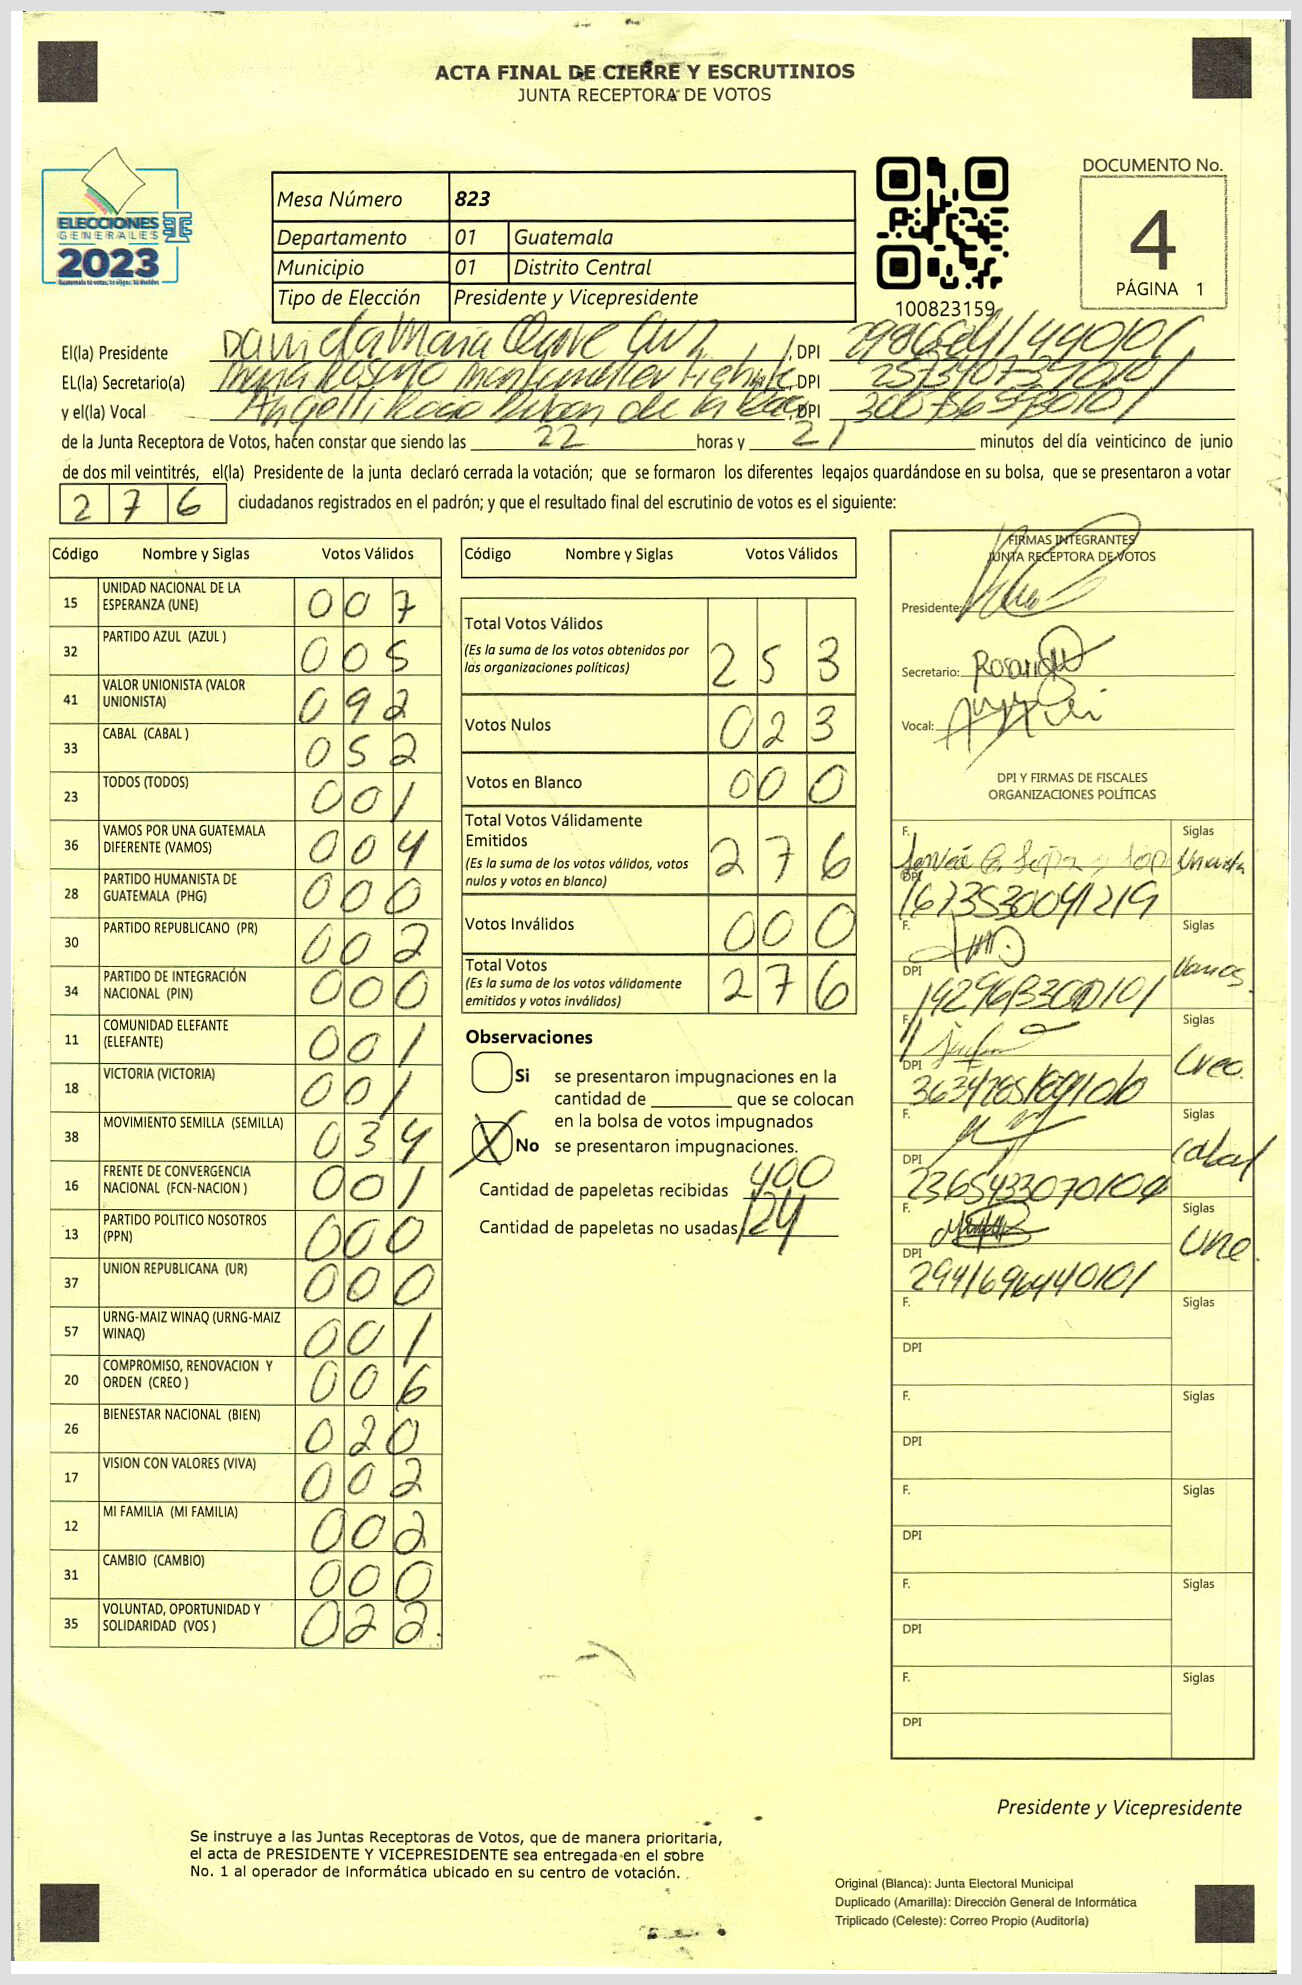 ACTA FINAL DE CIERRE Y ESCRUTINIOS
JUNTA RECEPTORA DE VOTOS
ELECCIONES
GENERALES
2023
Mesa Número 823
Departamento 01 Guatemala
Municipio 01 Distrito Central
Tipo de Elección Presidente y Vicepresidente
100823159
DOCUMENTO No.
4
PÁGINA 1
El(la) Presidente , DPI
EL(la) Secretario(a) , DPI
y el(la) Vocal , DPI
de la Junta Receptora de Votos, hacen constar que siendo las 22 horas y 21 minutos del día veinticinco de junio
de dos mil veintitrés, el(la) Presidente de la junta declaró cerrada la votación; que se formaron los diferentes legajos guardándose en su bolsa, que se presentaron a votar
276 ciudadanos registrados en el padrón; y que el resultado final del escrutinio de votos es el siguiente:
Código Nombre y Siglas Votos Válidos
15 UNIDAD NACIONAL DE LA ESPERANZA (UNE) 007
32 PARTIDO AZUL (AZUL ) 005
41 VALOR UNIONISTA (VALOR UNIONISTA) 092
33 CABAL (CABAL ) 052
23 TODOS (TODOS) 001
36 VAMOS POR UNA GUATEMALA DIFERENTE (VAMOS) 004
28 PARTIDO HUMANISTA DE GUATEMALA (PHG) 000
30 PARTIDO REPUBLICANO (PR) 002
34 PARTIDO DE INTEGRACIÓN NACIONAL (PIN) 000
11 COMUNIDAD ELEFANTE (ELEFANTE) 001
18 VICTORIA (VICTORIA) 001
38 MOVIMIENTO SEMILLA (SEMILLA) 034
16 FRENTE DE CONVERGENCIA NACIONAL (FCN-NACION ) 001
13 PARTIDO POLITICO NOSOTROS (PPN) 000
37 UNION REPUBLICANA (UR) 000
57 URNG-MAIZ WINAQ (URNG-MAIZ WINAQ) 001
20 COMPROMISO, RENOVACION Y ORDEN (CREO ) 006
26 BIENESTAR NACIONAL (BIEN) 020
17 VISION CON VALORES (VIVA) 002
12 MI FAMILIA (MI FAMILIA) 002
31 CAMBIO (CAMBIO) 000
35 VOLUNTAD, OPORTUNIDAD Y SOLIDARIDAD (VOS ) 022
Código Nombre y Siglas Votos Válidos
Total Votos Válidos 253
(Es la suma de los votos obtenidos por
las organizaciones políticas)
Votos Nulos 023
Votos en Blanco 000
Total Votos Válidamente
Emitidos 276
(Es la suma de los votos válidos, votos
nulos y votos en blanco)
Votos Inválidos 000
Total Votos 276
(Es la suma de los votos válidamente
emitidos y votos inválidos)
Observaciones
Si se presentaron impugnaciones en la
cantidad de que se colocan
en la bolsa de votos impugnados
X No se presentaron impugnaciones.
Cantidad de papeletas recibidas 400
Cantidad de papeletas no usadas 124
FIRMAS INTEGRANTES
JUNTA RECEPTORA DE VOTOS
Presidente:
Secretario:
Vocal:
DPI Y FIRMAS DE FISCALES
ORGANIZACIONES POLÍTICAS
F. Siglas Unionista
DPI
F. Siglas Vamos
DPI
F. Siglas Creo.
DPI
F. Siglas Cabal
DPI
F. Siglas Une.
DPI
F. Siglas
DPI
F. Siglas
DPI
F. Siglas
DPI
F. Siglas
DPI
F. Siglas
DPI
Presidente y Vicepresidente
Se instruye a las Juntas Receptoras de Votos, que de manera prioritaria,
el acta de PRESIDENTE Y VICEPRESIDENTE sea entregada en el sobre
No. 1 al operador de informática ubicado en su centro de votación.
Original (Blanca): Junta Electoral Municipal
Duplicado (Amarilla): Dirección General de Informática
Triplicado (Celeste): Correo Propio (Auditoría)